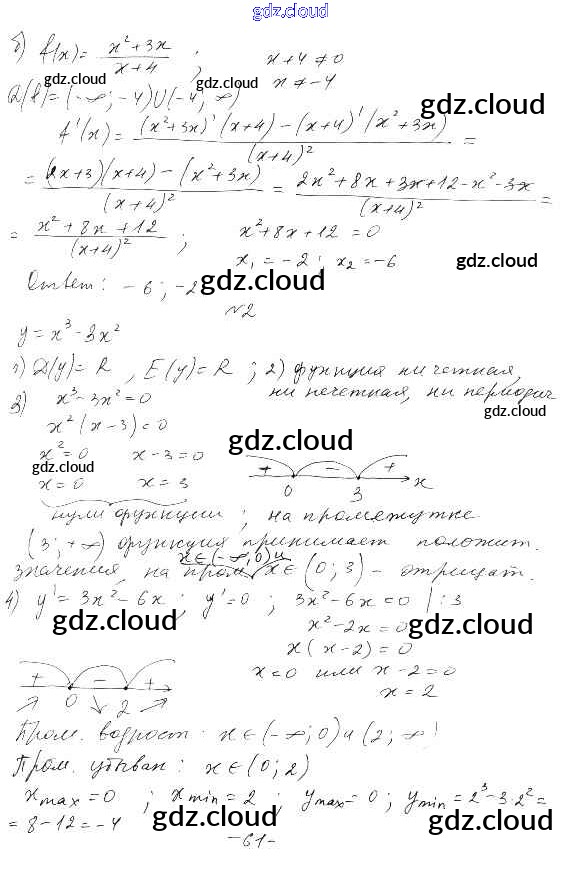 gdz.cloud
б) f(x) = (x²+3x)/(x+4) ; x+4 ≠ 0
gdz.cloud gdz.cloud x ≠ -4 gdz.cloud
D(f) = (-∞; -4)∪(-4; ∞)
f'(x) = ((x²+3x)'(x+4) - (x+4)'(x²+3x))/(x+4)² =
= ((2x+3)(x+4) - (x²+3x))/(x+4)² = (2x²+8x+3x+12-x²-3x)/(x+4)² =
= (x²+8x+12)/(x+4)² ; x²+8x+12 = 0
x₁ = -2 ; x₂ = -6 gdz.cloud
Ответ: -6 ; -2 gdz.cloud
№2
y = x³ - 3x²
1) D(y) = R , E(y) = R ; 2) функция ни четная,
ни нечетная, ни периодич
3) x³ - 3x² = 0
x²(x-3) = 0
x² = 0 x - 3 = 0 gdz.cloud
gdz.cloud + - +
x = 0 x = 3 0 3 x
нули функции ; на промежутке
(3; +∞) функция принимает положит.
x∈(-∞; 0) и
значения, на пром x∈(0; 3) - отрицат.
4) y' = 3x² - 6x ; y' = 0 ; 3x² - 6x = 0 |:3
gdz.cloud gdz.cloud x² - 2x = 0 gdz.cloud
x(x-2) = 0
+ - + x = 0 или x - 2 = 0
0 2 x = 2
Пром. возрост : x∈(-∞; 0) и (2; ∞)
Пром. убыван : x∈(0; 2)
xmax = 0 ; xmin = 2 ; ymax = 0 ; ymin = 2³ - 3·2² =
= 8 - 12 = -4 gdz.cloud gdz.cloud
-61-